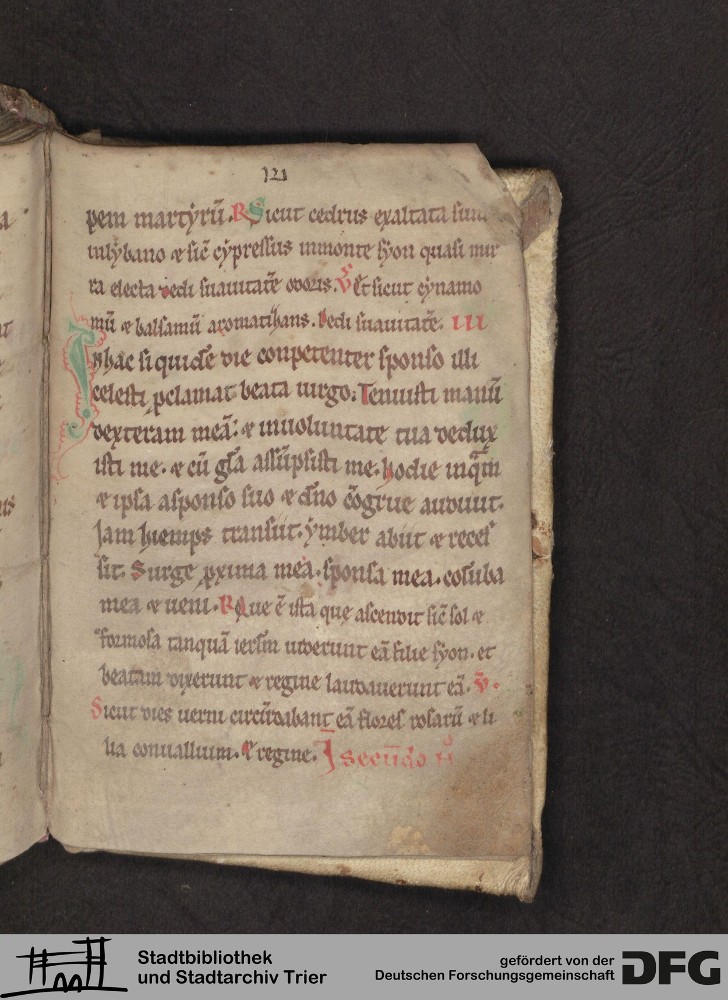 121
pem martẏrū. R Sicut cedrus exaltata sum
inlẏbano ⁊ sic̄ cẏpressus inmonte sẏon quasi mir
ra electa dedi suauitatē odoris. V̊ Et sicut cẏnamo
mū ⁊ balsamū aromatiҳans. Dedi suauitatē. III
Inhac siquidē die conpetenter sponso illi
celesti ꝓclamat beata uirgo. Tenuisti manū
dexteram meā. ⁊ inuoluntate tua dedux
isti me. ⁊ cū gl̄a assūpsisti me. hodie inqͣm
⁊ ipsa asponso suo ⁊ dn̄o cōgrue audiuit.
Jam hiemps transiit. ẏmber abiit ⁊ reces
sit. Surge ꝓxima mea. sponsa mea. colūba
mea ⁊ ueni. R Que ē ista que ascendit sic̄ sol ⁊
formosa tanquā ierl̄m uiderunt eā filie sẏon. et
beatam dixerunt ⁊ regine laudauerunt eā. V̄.
Sicut dies uerni circūdabant eā flores rosarū ⁊ li
lia conuallium. Et regine. I secūdo N̊
Stadtbibliothek
und Stadtarchiv Trier
gefördert von der
Deutschen Forschungsgemeinschaft
DFG